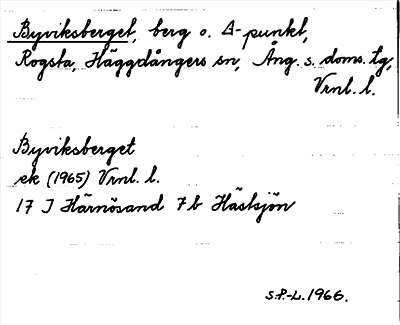 Byviksberget, berg o. Δ-punkt,
Rogsta, Häggdångers sn, Ång. s. doms. tg,
Vrnl. l.
Byviksberget
ek (1965) Vrnl. l.
17 J Härnösand 7 b Hästsjön
S.P.-L. 1966.